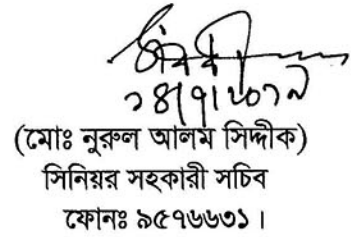 ১৪/৭/২০১৯
(মোঃ নুরুল আলম সিদ্দীক)
সিনিয়র সহকারী সচিব
ফোনঃ ৯৫৭৬৬৩১।